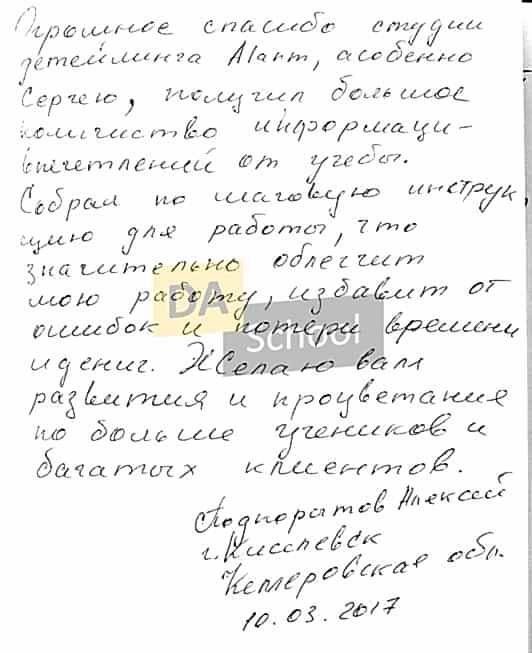 Огромное спасибо студии
детейлинга Alant, особенно
Сергею, получил большое
количество информаци-
впечетлений от учебы.
Собрал по шаговую инструк,
цию для работы, что
значительно облегчит
мою работу, избавит от
ошибок и потери времени
и дениг. Желаю вам
развития и процветания
по больше учеников и
багатых клиентов.
DA
School
Алексей
г. Киселевск
Кемеровская обл.
10.03.2017